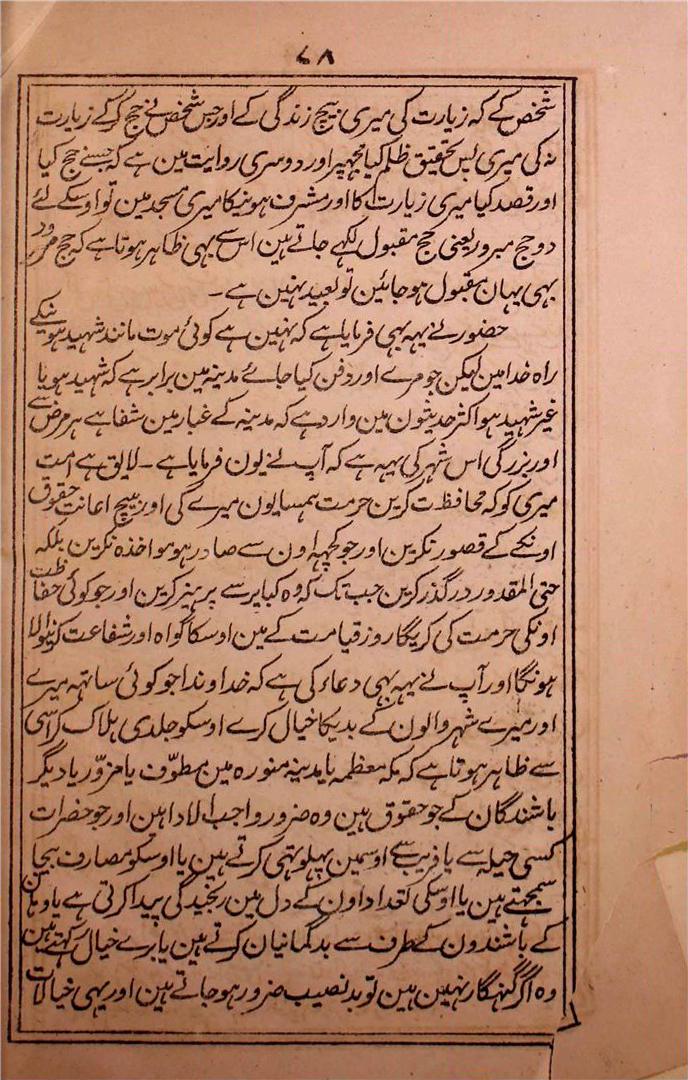 ۶۸
شخص کے کہ زیارت کی میری بیچ زندگی کے اور جس شخص نے حج کرکے زیارت
نہ کی میری پس تحقیق ظلم کیا مجھپر اور دوسری روایت مین ہے کہ جسنے حج کیا
اور قصد کیا میری زیارت کا اور مشرف ہونیکا میری مسجد مین تو اوسکے لئے
دو حج مبرور یعنی حج مقبول لکھے جاتے ہین اس سے بہی ظاہر ہوتا ہے کہ حج
بہی یہان مقبول ہو جائین تو بعید نہین ہے۔
حضور نے یہہ بہی فرمایا ہے کہ نہین ہے کوئی موت مانند شہید ہونیکے
راہ خدا مین لیکن جو مرے اور دفن کیا جائے مدینہ مین برابر ہے کہ شہید ہو یا
غیر شہید ہو اکثر حدیثون مین وارد ہے کہ مدینہ کے غبار مین شفا ہے ہر مرض سے
اور بزرگی اس شہر کی یہہ ہے کہ آپ نے یون فرمایا ہے۔ لایق ہے امت
میری کو کہ محافظت کرین حرمت ہمسایون میرے کی اور بیچ اعانت حقوق
اونکے کے قصور نکرین اور جو کچہہ اون سے صادر ہو مواخذہ نکرین بلکہ
حتی المقدور درگذر کرین جب تک کہ وہ کبایر سے پرہیز کرین اور جو کوئی حفاظت
اونکی حرمت کی کریگا روز قیامت کے مین اوسکا گواہ اور شفاعت کرنیوالا
ہونگا اور آپ نے یہہ بہی دعاء کی ہے کہ خداوندا جو کوئی ساتہہ میرے
اور میرے شہر والون کے بدیکا خیال کرے اوسکو جلدی ہلاک کر اسی
سے ظاہر ہوتا ہے کہ مکہ معظمہ یا مدینہ منورہ مین مطوّف یا مزوّر یا دیگر
باشندگان کے جو حقوق ہین وہ ضرور واجب الادا ہین اور جو حضرات
کسی حیلہ سے یا فریب سے اوسمین پہلو تہی کرتے ہین یا اوسکو مصارف بیجا
سمجہتے ہین یا اوسکی تعداد اون کے دل مین رنجیدگی پیدا کرتی ہے یا وہان
کے باشندون کے طرف سے بدگمانیان کرتے ہین یا برے خیال رکہتے ہین
وہ اگر گنہگار نہین ہین تو بدنصیب ضرور ہو جاتے ہین اور یہی خیالات